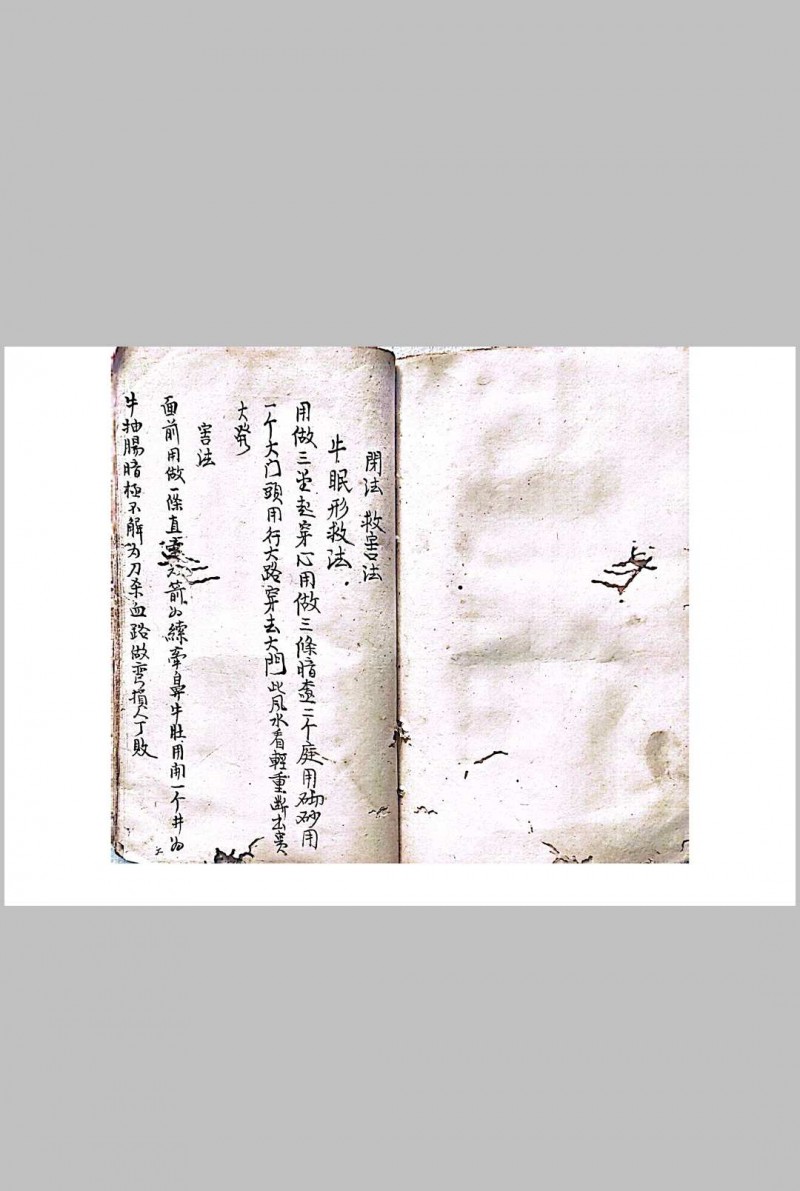 閉法 救害法
牛眠形救法.
用做三堂起穿心用做三條暗 三个庭用 砂用
一个大门頭用行大路穿去大門此风水看輕重断出贵
大発
害法
面前用做一條直 箭 牽鼻牛肚用開一个井为
牛抽腸暗極不解为刀杀血路做弯損人丁敗